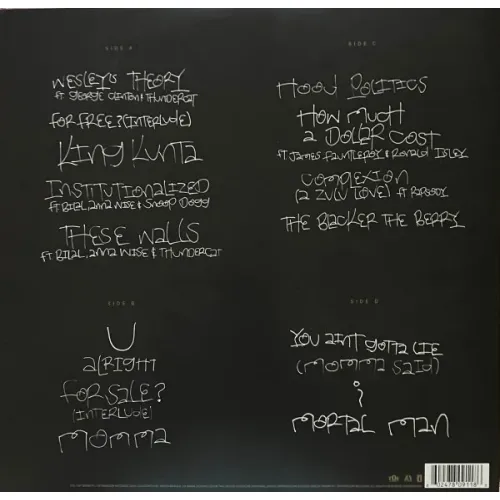 SIDE A
WESLEY'S THEORY
FT GEORGE CLINTON & THUNDERCAT
FOR FREE? (INTERLUDE)
KING KUNTA
INSTITUTIONALIZED
FT BILAL, ANNA WISE & SNOOP DOGG
THESE WALLS
FT BILAL, ANNA WISE & THUNDERCAT
SIDE B
U
ALRIGHT
FOR SALE?
(INTERLUDE)
MOMMA
SIDE C
HOOD POLITICS
HOW MUCH
A DOLLAR COST
FT JAMES FAUNTLEROY & RONALD ISLEY
COMPLEXION
(A ZULU LOVE) FT RAPSODY
THE BLACKER THE BERRY
SIDE D
YOU AINT GOTTA LIE
(MOMMA SAID)
i
MORTAL MAN
02478 09118